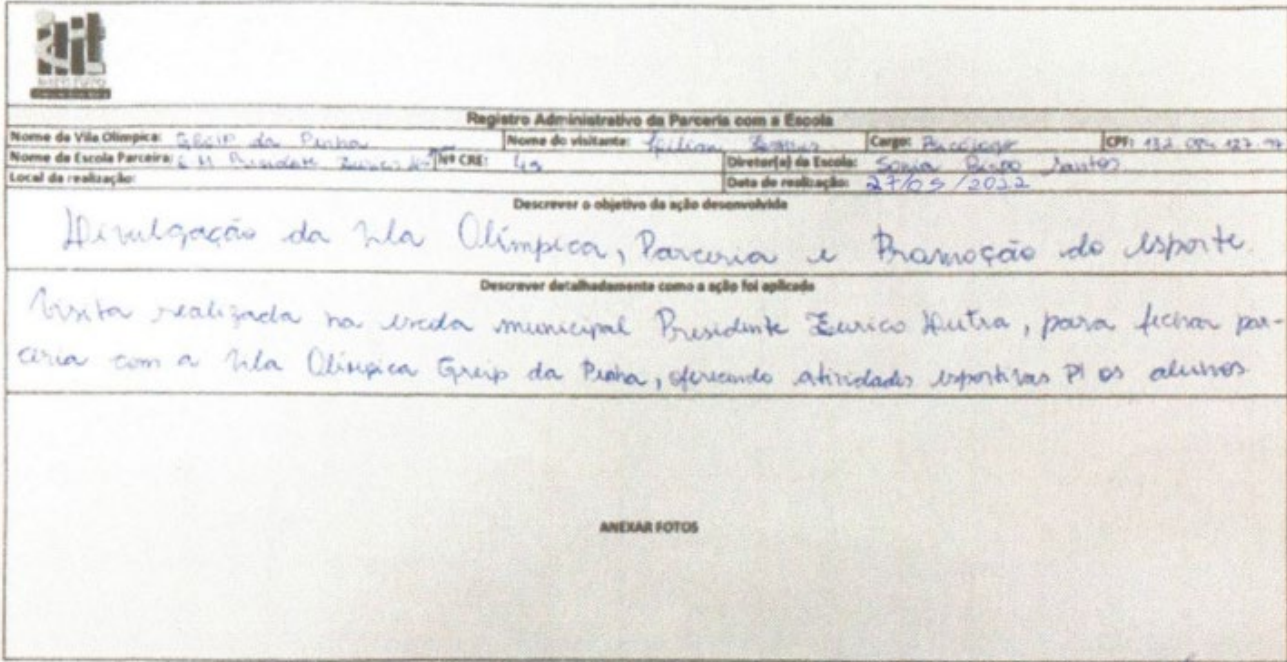 Registro Administrativo da Parceria com a Escola
Nome da Vila Olímpica: GREIP da Penha Nome do visitante: Cargo: Psicólogo CPF:
Nome da Escola Parceira: E M Presidente Eurico Nº CRE: 4a Diretor(a) da Escola: Sonia Santos
Local da realização: Data de realização: 27/05/2022
Descrever o objetivo da ação desenvolvida
Divulgação da Vila Olímpica, Parceria e Promoção do esporte.
Descrever detalhadamente como a ação foi aplicada
Visita realizada na escola municipal Presidente Eurico Dutra, para fechar par-
ceria com a Vila Olímpica Greip da Penha, oferecendo atividades esportivas P/ os alunos
ANEXAR FOTOS